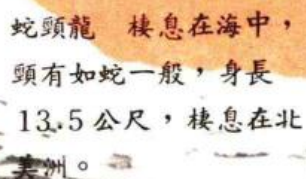 蛇頸龍　棲息在海中，
頸有如蛇一般，身長
13.5公尺，棲息在北
美洲。